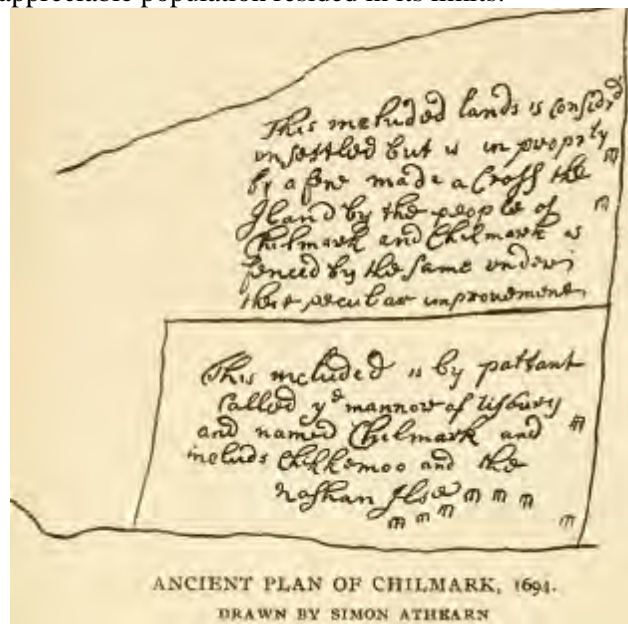 appreciable population resided in its limits.
This included lands is considrd
unsettled but is in proprty
by a fene made a Cross the
Iland by the people of
Chilmark and Chilmark is
fenced by the same under
there peculiar improuement
This included is by pattant
Called ye mannor of tisbury
and named Chilmark and
includs Chikkemoo and the
Noshan Ilse
ANCIENT PLAN OF CHILMARK, 1694.
DRAWN BY SIMON ATHEARN